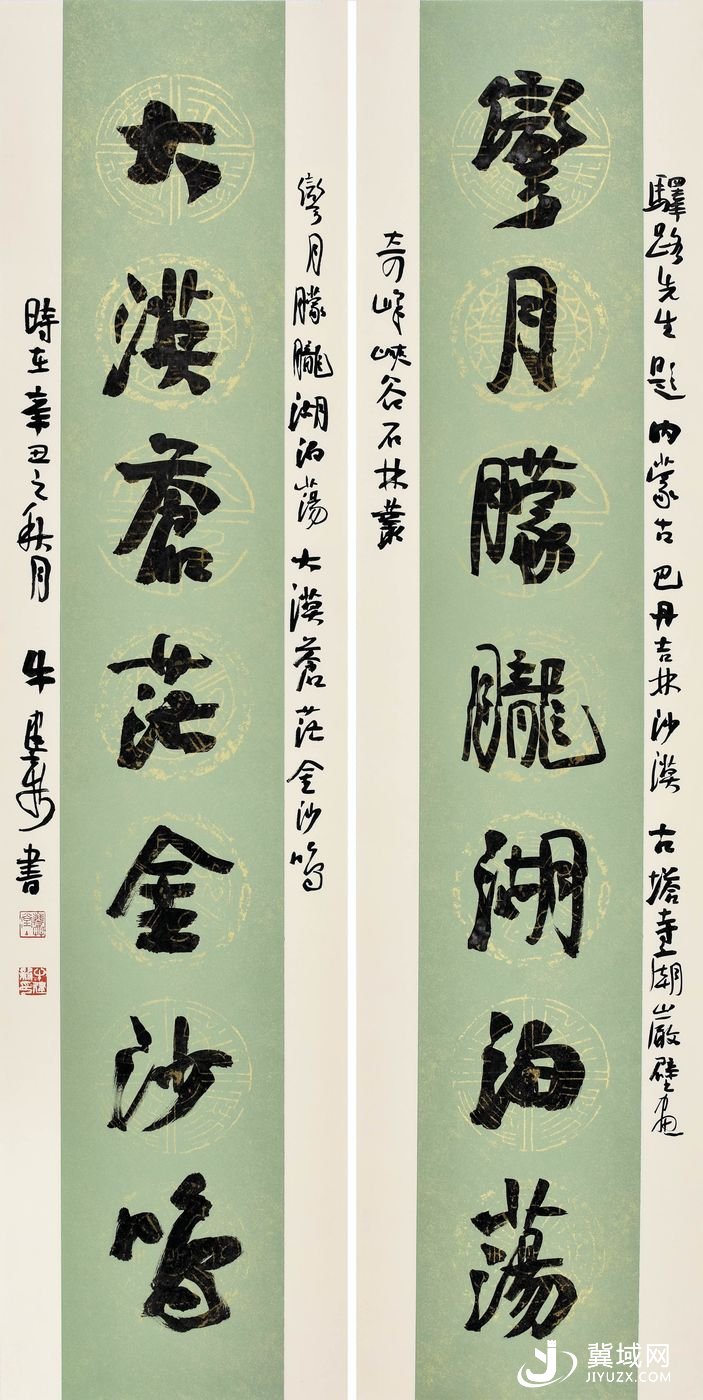 驛路先生題内蒙古巴丹吉林沙漠 古塔寺湖巖壁畫
彎月朦朧湖泊蕩
奇峰峽谷石林叢
彎月朦朧湖泊蕩 大漠蒼茫金沙鳴
大漠蒼茫金沙鳴
時在辛丑之秋月 牛建 書
冀域网
JIYUZX.COM